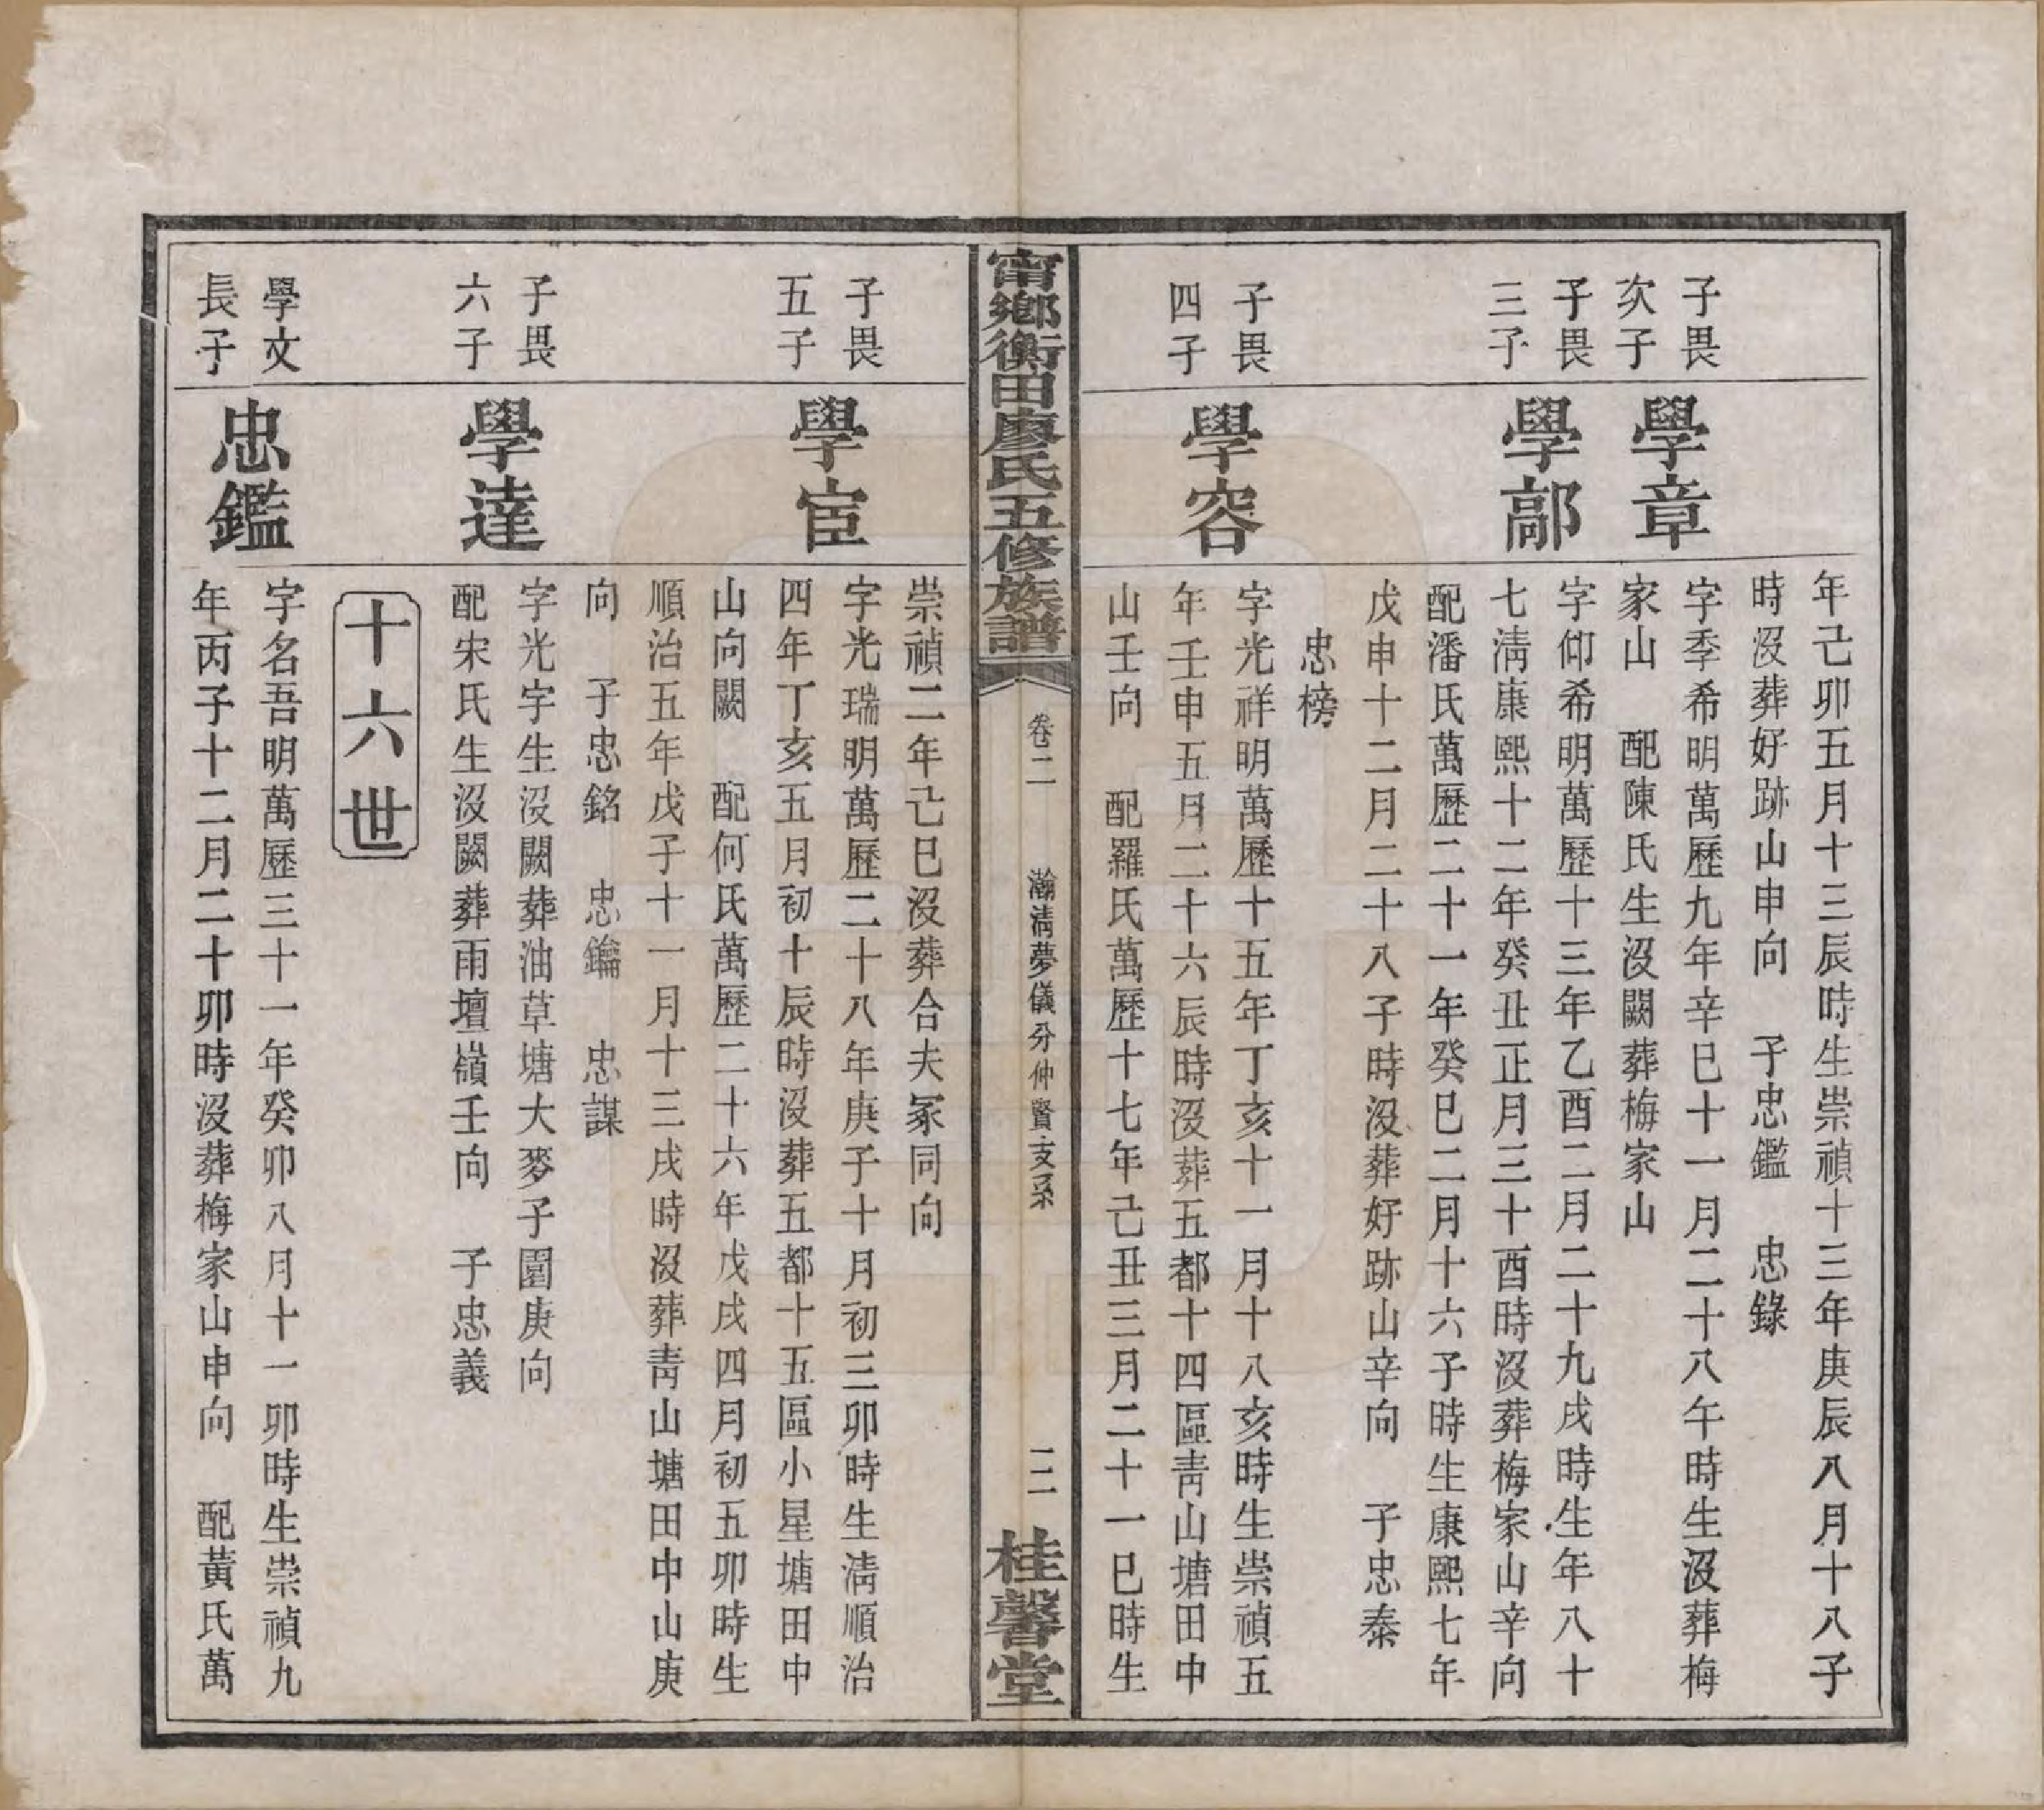 年己卯五月十三辰時生崇禎十三年庚辰八月十八子
時沒葬好跡山申向　子忠鑑　忠錄
子畏
次子
學章
字季希明萬歷九年辛巳十一月二十八午時生沒葬梅
家山　配陳氏生沒闕葬梅家山
子畏
三子
學鄗
字仰希明萬歷十三年乙酉二月二十九戌時生年八十
七淸康熙十二年癸丑正月三十酉時沒葬梅家山辛向
配潘氏萬歷二十一年癸巳二月十六子時生康熙七年
戊申十二月二十八子時沒葬好跡山辛向　子忠泰
忠榜
子畏
四子
學容
字光祥明萬歷十五年丁亥十一月十八亥時生崇禎五
年壬申五月二十六辰時沒葬五都十四區靑山塘田中
山壬向　配羅氏萬歷十七年己丑三月二十一巳時生
甯鄉衡田廖氏五修族譜
卷二
瀚淸夢儀分仲賢支系
二二
桂馨堂
崇禎二年己巳沒葬合夫冢同向
子畏
五子
學宦
字光瑞明萬歷二十八年庚子十月初三卯時生淸順治
四年丁亥五月初十辰時沒葬五都十五區小星塘田中
山向闕　配何氏萬歷二十六年戊戌四月初五卯時生
順治五年戊子十一月十三戌時沒葬靑山塘田中山庚
向　子忠銘　忠鑰　忠謀
子畏
六子
學達
字光宇生沒闕葬油草塘大麥子園庚向
配宋氏生沒闕葬雨壇嶺壬向　子忠義
十六世
學文
長子
忠鑑
字名吾明萬歷三十一年癸卯八月十一卯時生崇禎九
年丙子十二月二十卯時沒葬梅家山申向　配黃氏萬